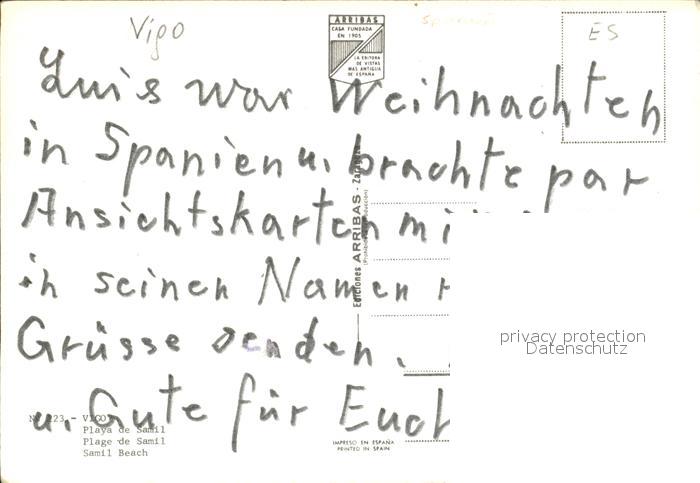 Vigo
Spanien
ES
ARRIBAS
CASA FUNDADA
EN 1905
LA EDITORA
DE VISTAS
MAS ANTIGUA
DE ESPAÑA
Luis war Weihnachten
in Spanien u. brachte par
Ansichtskarten mi
in seinen Namen
Grüsse senden.
u. Gute für Euch
Ediciones ARRIBAS - Zaragoza
privacy protection
Datenschutz
223 - VIGO
Playa de Samil
Plage de Samil
Samil Beach
IMPRESO EN ESPAÑA
PRINTED IN SPAIN